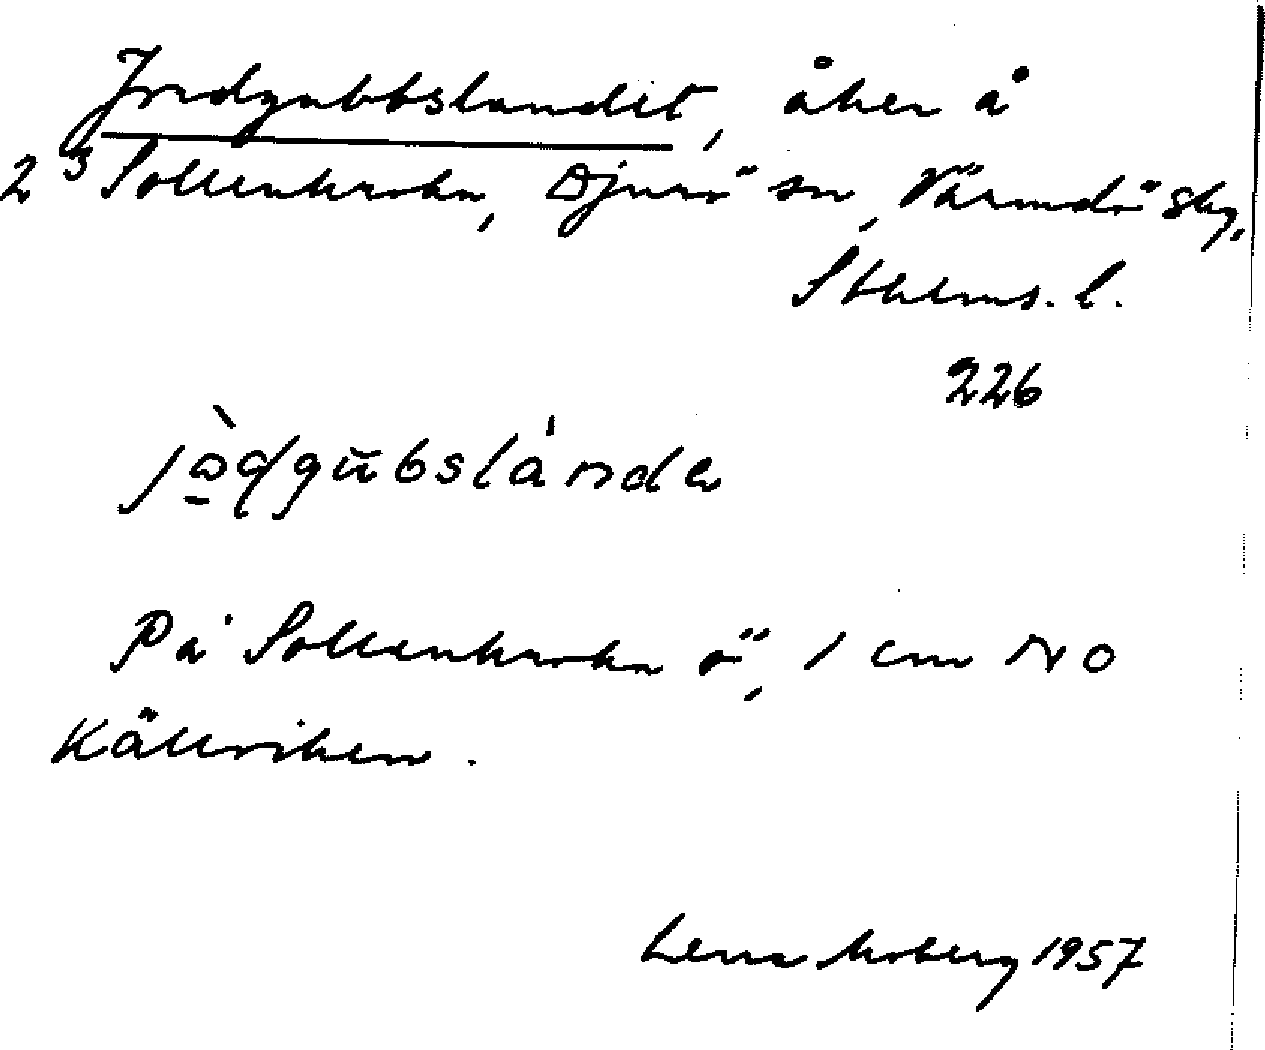 Jordgubbslandet, åker å
2³ Sollenkroka, Djurö sn, Värmdö skg,
Sthlms. l.
226
jò̱ɖgūbslánda
På Sollenkroka ö, 1 cm NO
Källviken.
Lena Moberg 1957